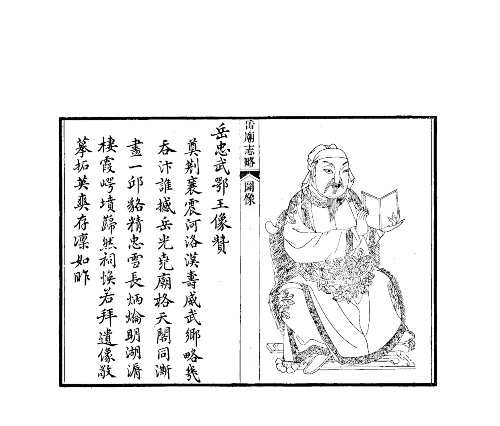 岳廟志略
圖像
岳忠武鄂王像贊
奠荊襄震河洛漢壽威武鄉略幾
吞汴誰撼岳光堯廟格天閣同澌
盡一邱貉精忠雪長炳爚明湖漘
棲霞崿墳巋然祠煥若拜遺像敬
摹拓英爽存凜如昨